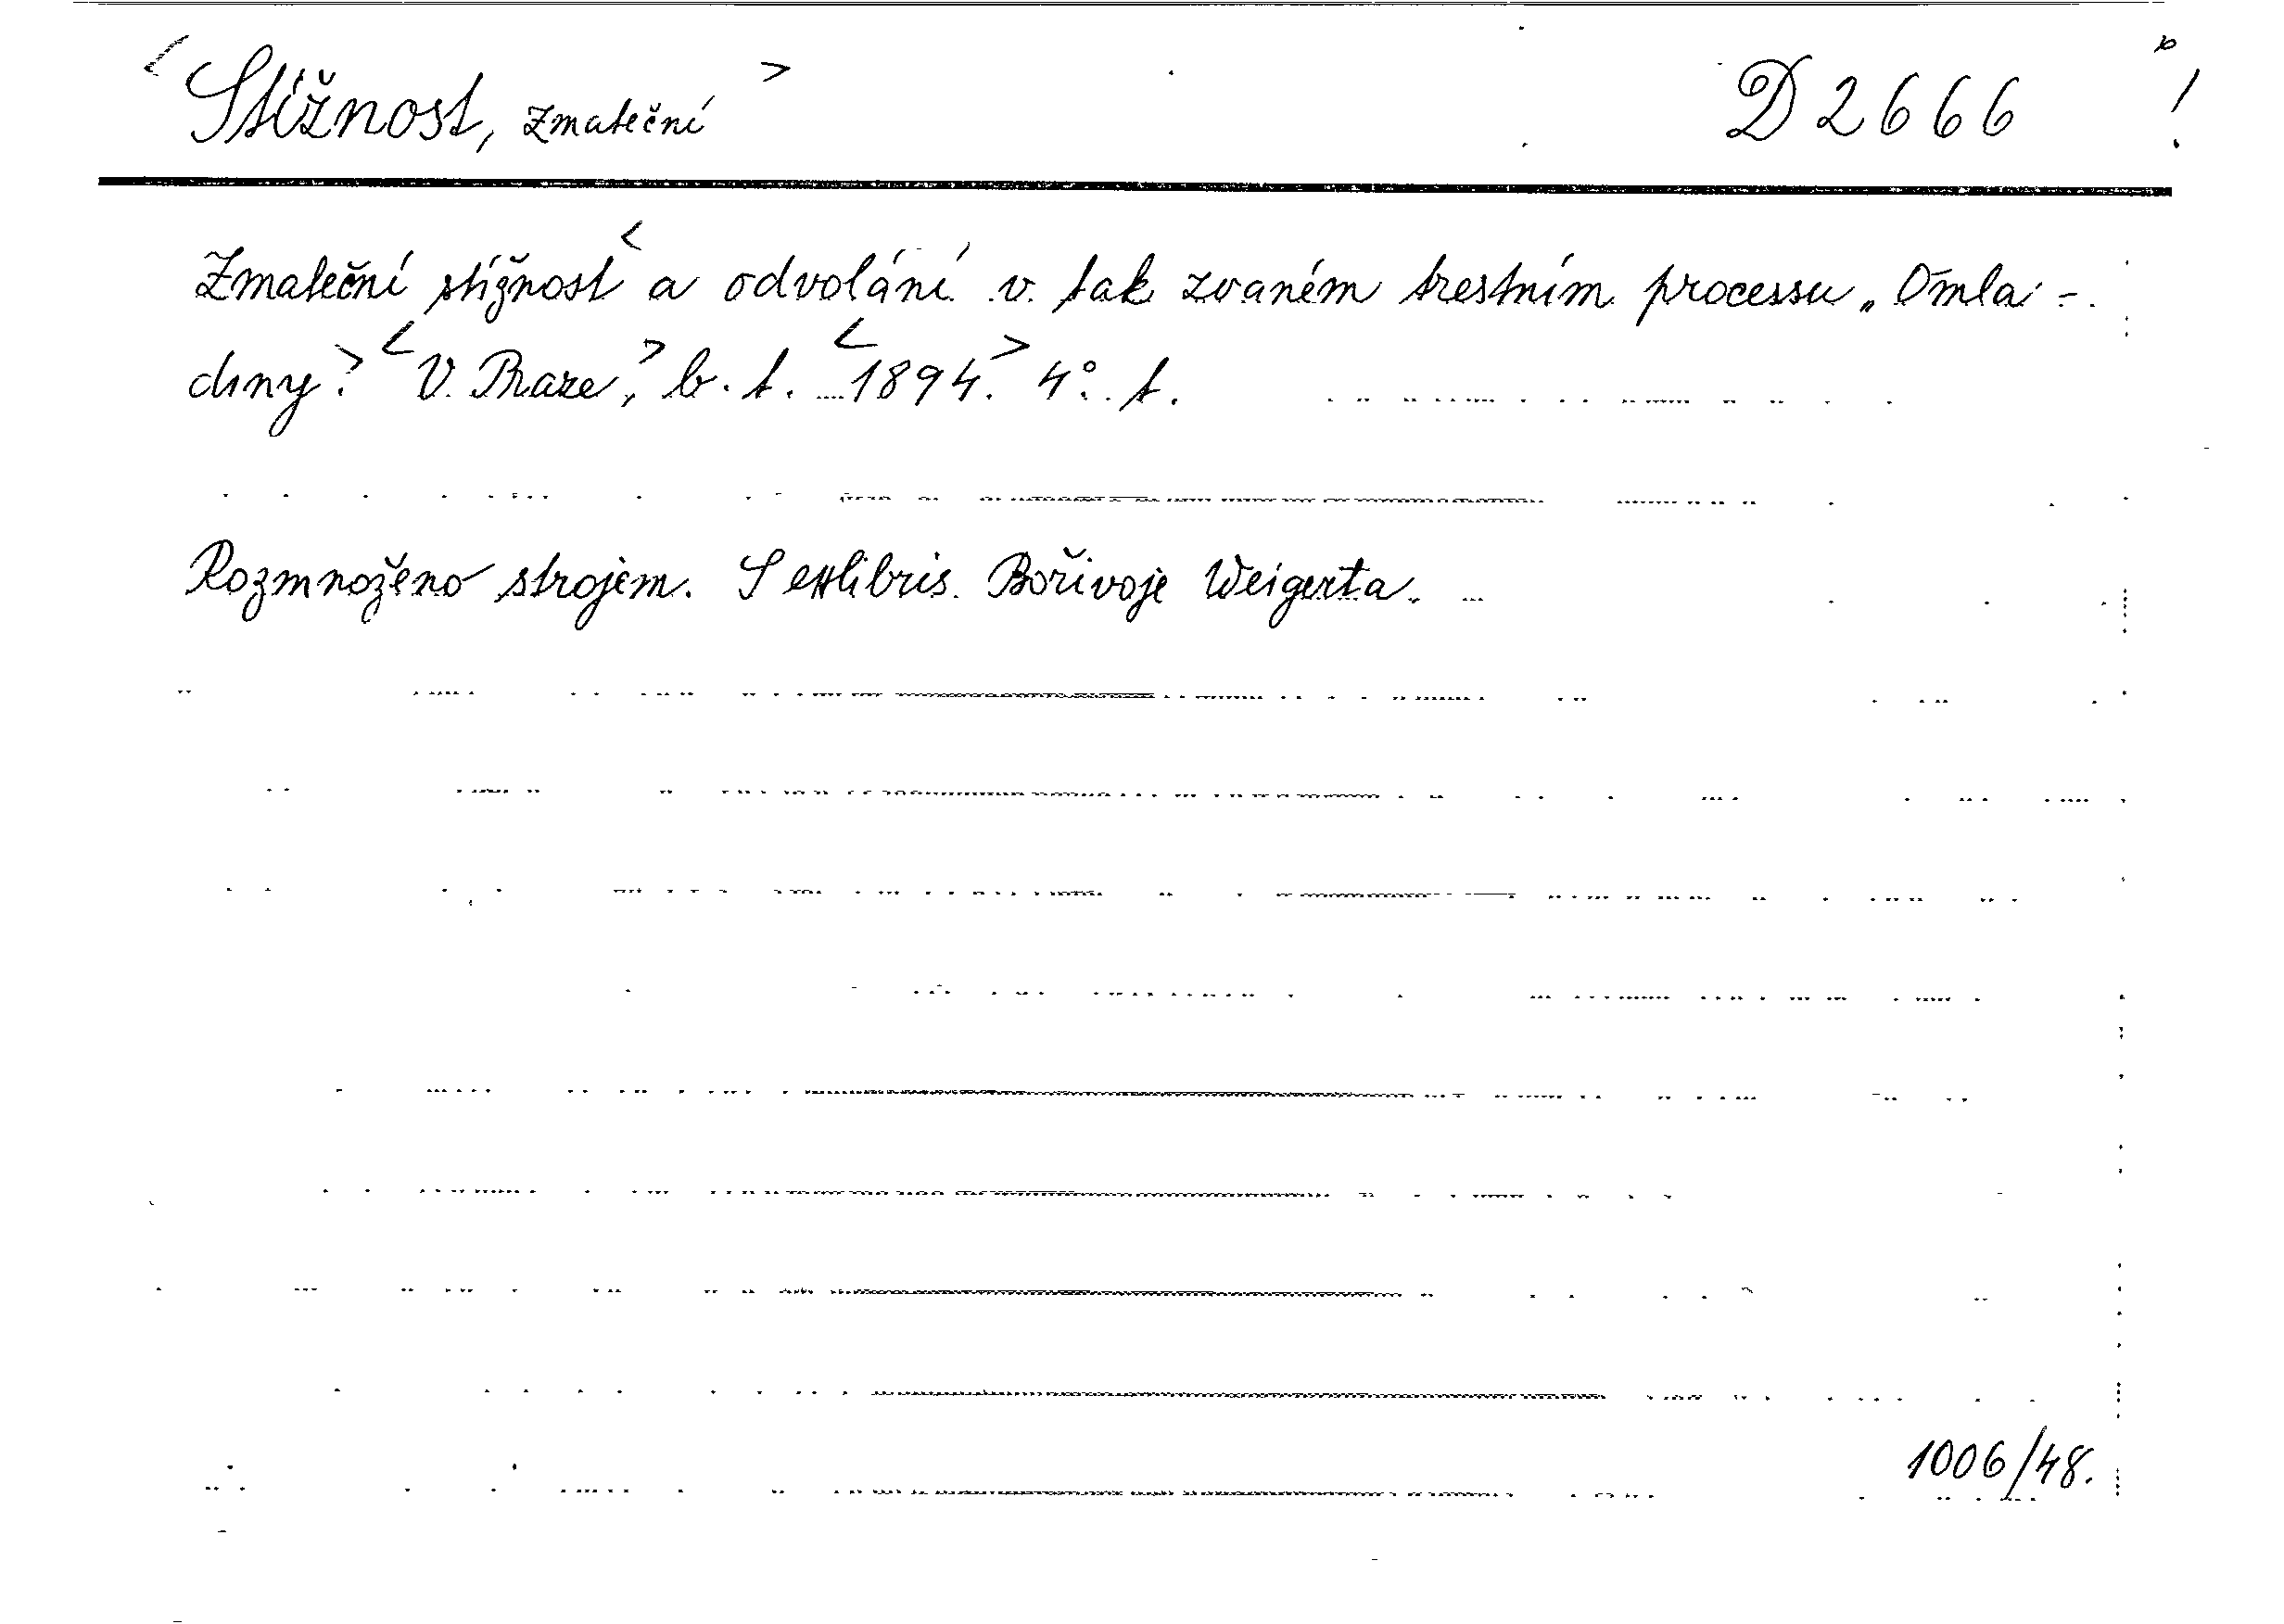 < Stížnost, zmateční > D 2666 !
Zmateční stížnost < a odvolání v tak zvaném trestním processu „Omla-
diny." > < V Praze, > b. t. < 1894. > 4°. t.
Rozmnoženo strojem. S exlibris Bořivoje Weigerta.
1006/48.